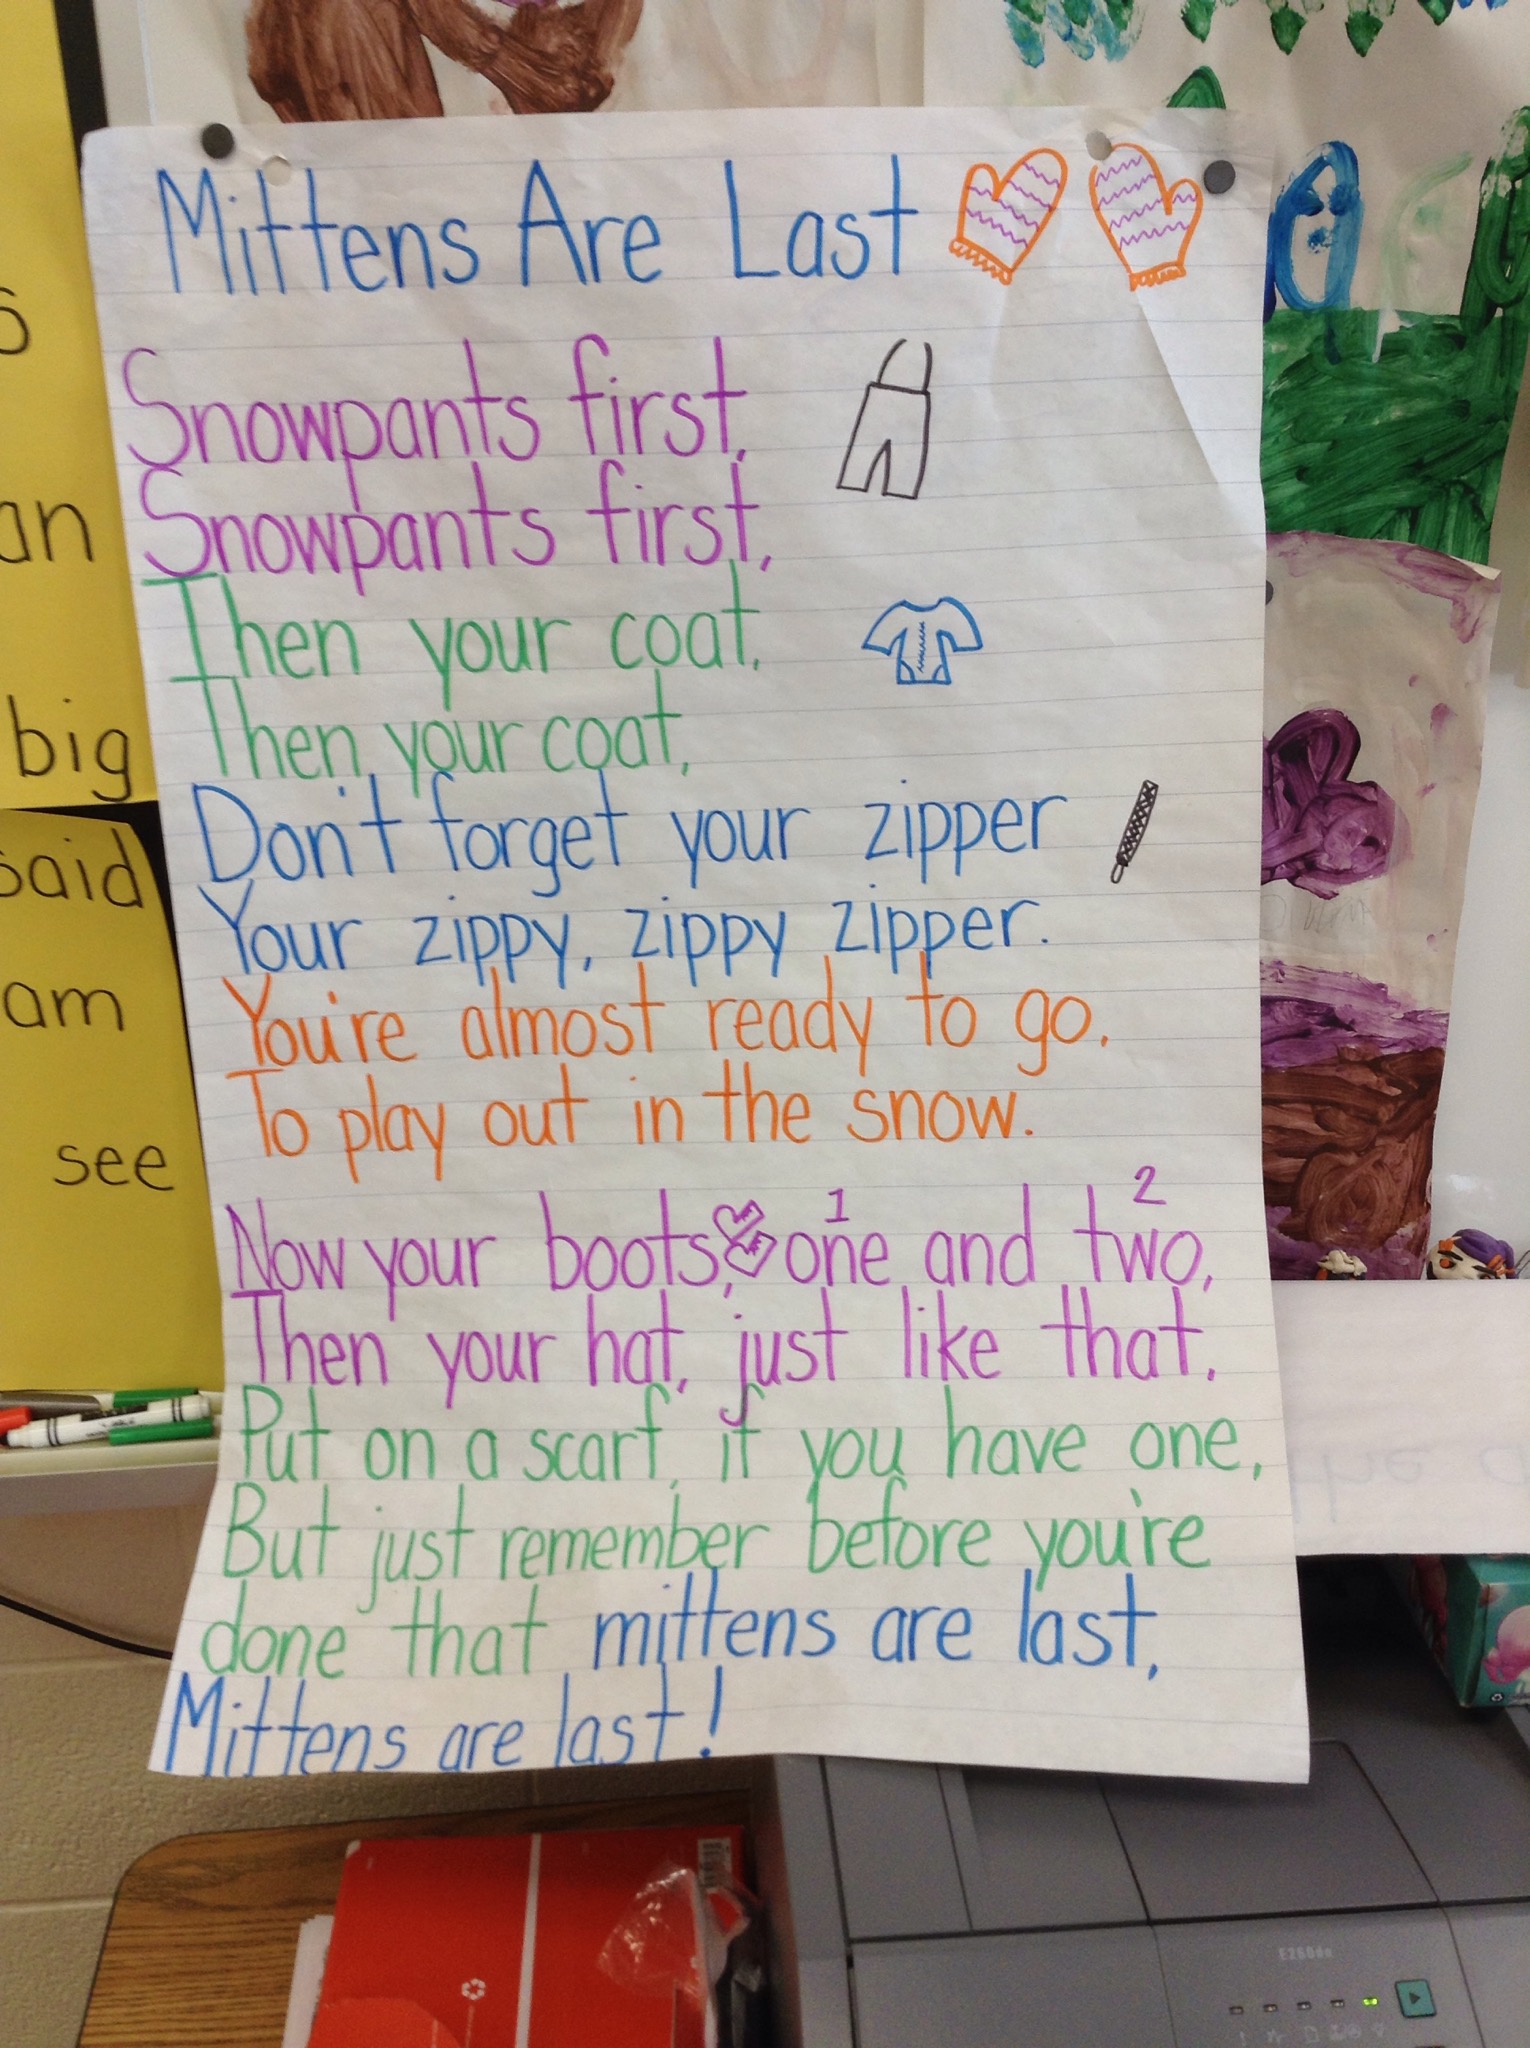 Mittens Are Last
Snowpants first,
Snowpants first,
Then your coat,
Then your coat,
Don't forget your zipper
Your zippy, zippy zipper.
You're almost ready to go,
To play out in the snow.
1 2
Now your boots, one and two,
Then your hat, just like that,
Put on a scarf, if you have one,
But just remember before you're
done that mittens are last,
Mittens are last!
an
big
said
am
see
E260dn